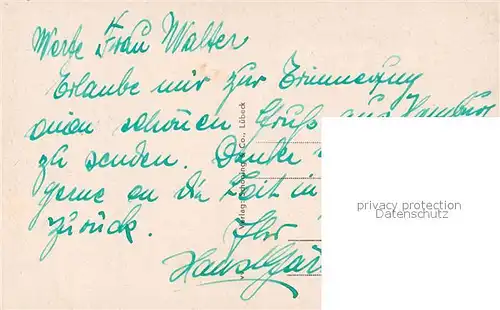 Werte Frau Walter
Erlaube mir zur Erinnerung
einen schönen Gruß aus Hamburg
zu senden. Denke
gerne an die Zeit in
zurück. Ihr
Verlag Schöning & Co., Lübeck
privacy protection
Datenschutz